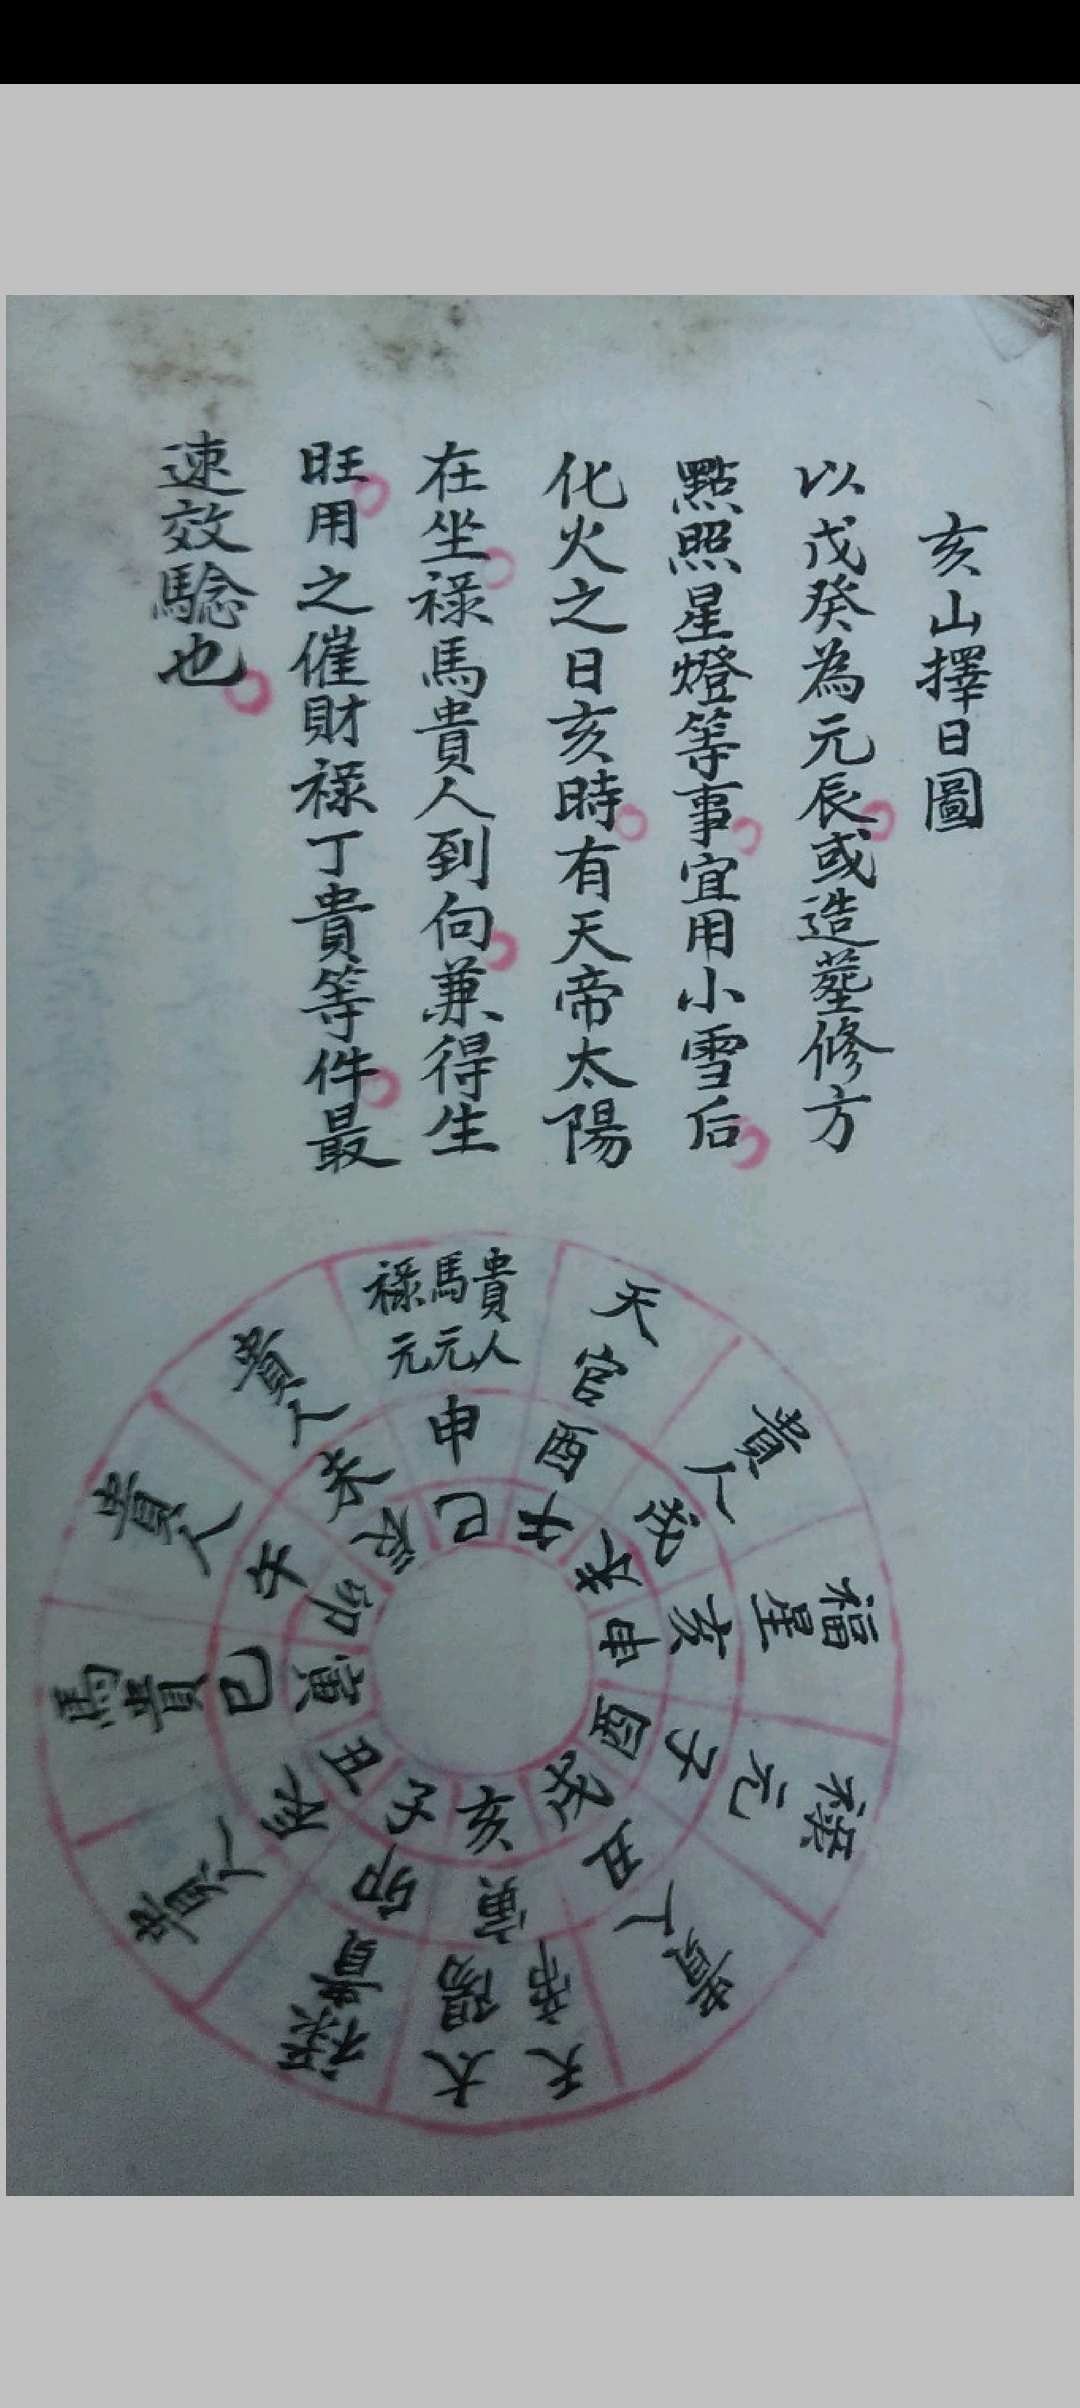 亥山擇日圖
以戊癸為元辰或造塟修方
點照星燈等事宜用小雪后
化火之日亥時有天帝太陽
在坐祿馬貴人到向兼得生
旺用之催財祿丁貴等件最
速效騐也
祿元 馬元 貴人
天官
貴人
福星
祿元
貴人
天帝 太陽
祿貴
貴人
馬貴
貴人
貴人
申
酉
戌
亥
子
丑
寅
卯
辰
巳
午
未
巳
午
未
申
酉
戌
亥
子
丑
寅
卯
辰